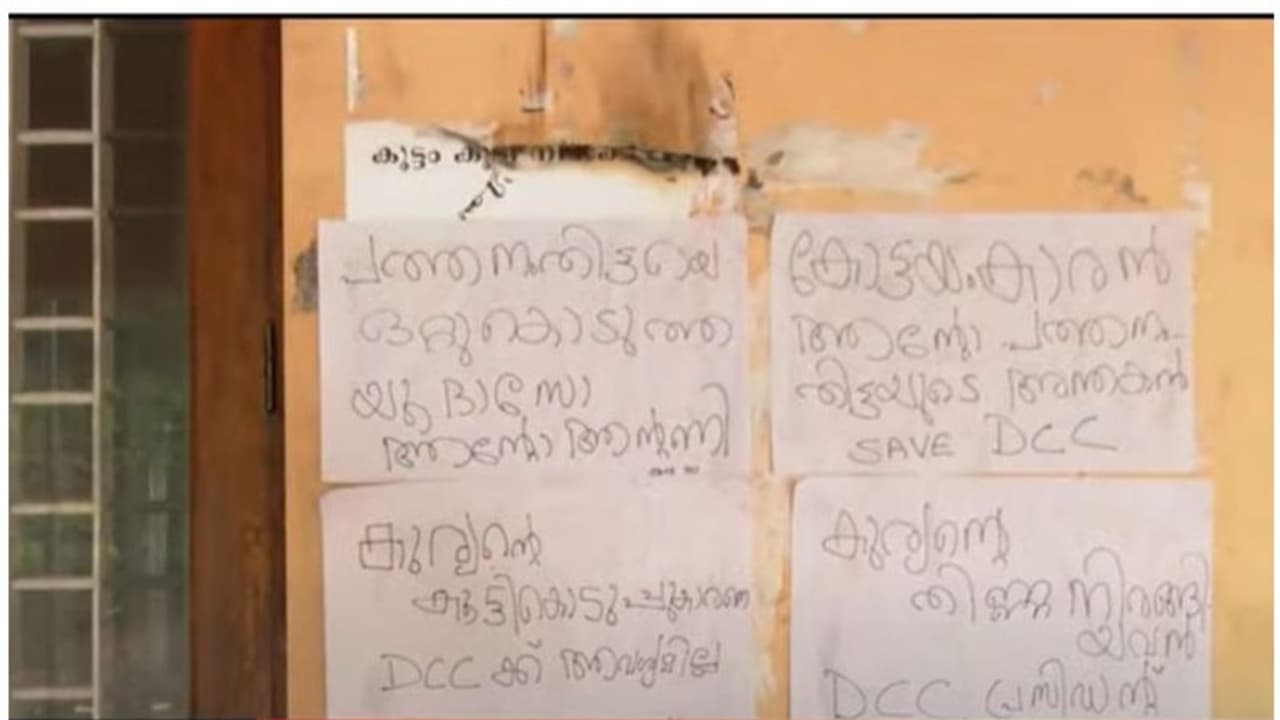 കൂട്ടം കൂടി
പത്തനംതിട്ടയെ
ഒറ്റുകൊടുത്ത
യൂദാസോ
ആന്റോ ആന്റണി
കോട്ടയംകാരൻ
ആന്റോ പത്തനം-
തിട്ടയുടെ അന്തകൻ
SAVE DCC
കുര്യന്റെ
കൂട്ടികൊടുപ്പുകാരനെ
DCC ക്ക് ആവശ്യമില്ല
കുര്യന്റെ
തിണ്ണ നിരങ്ങി-
യവൻ
DCC പ്രസിഡന്റ്